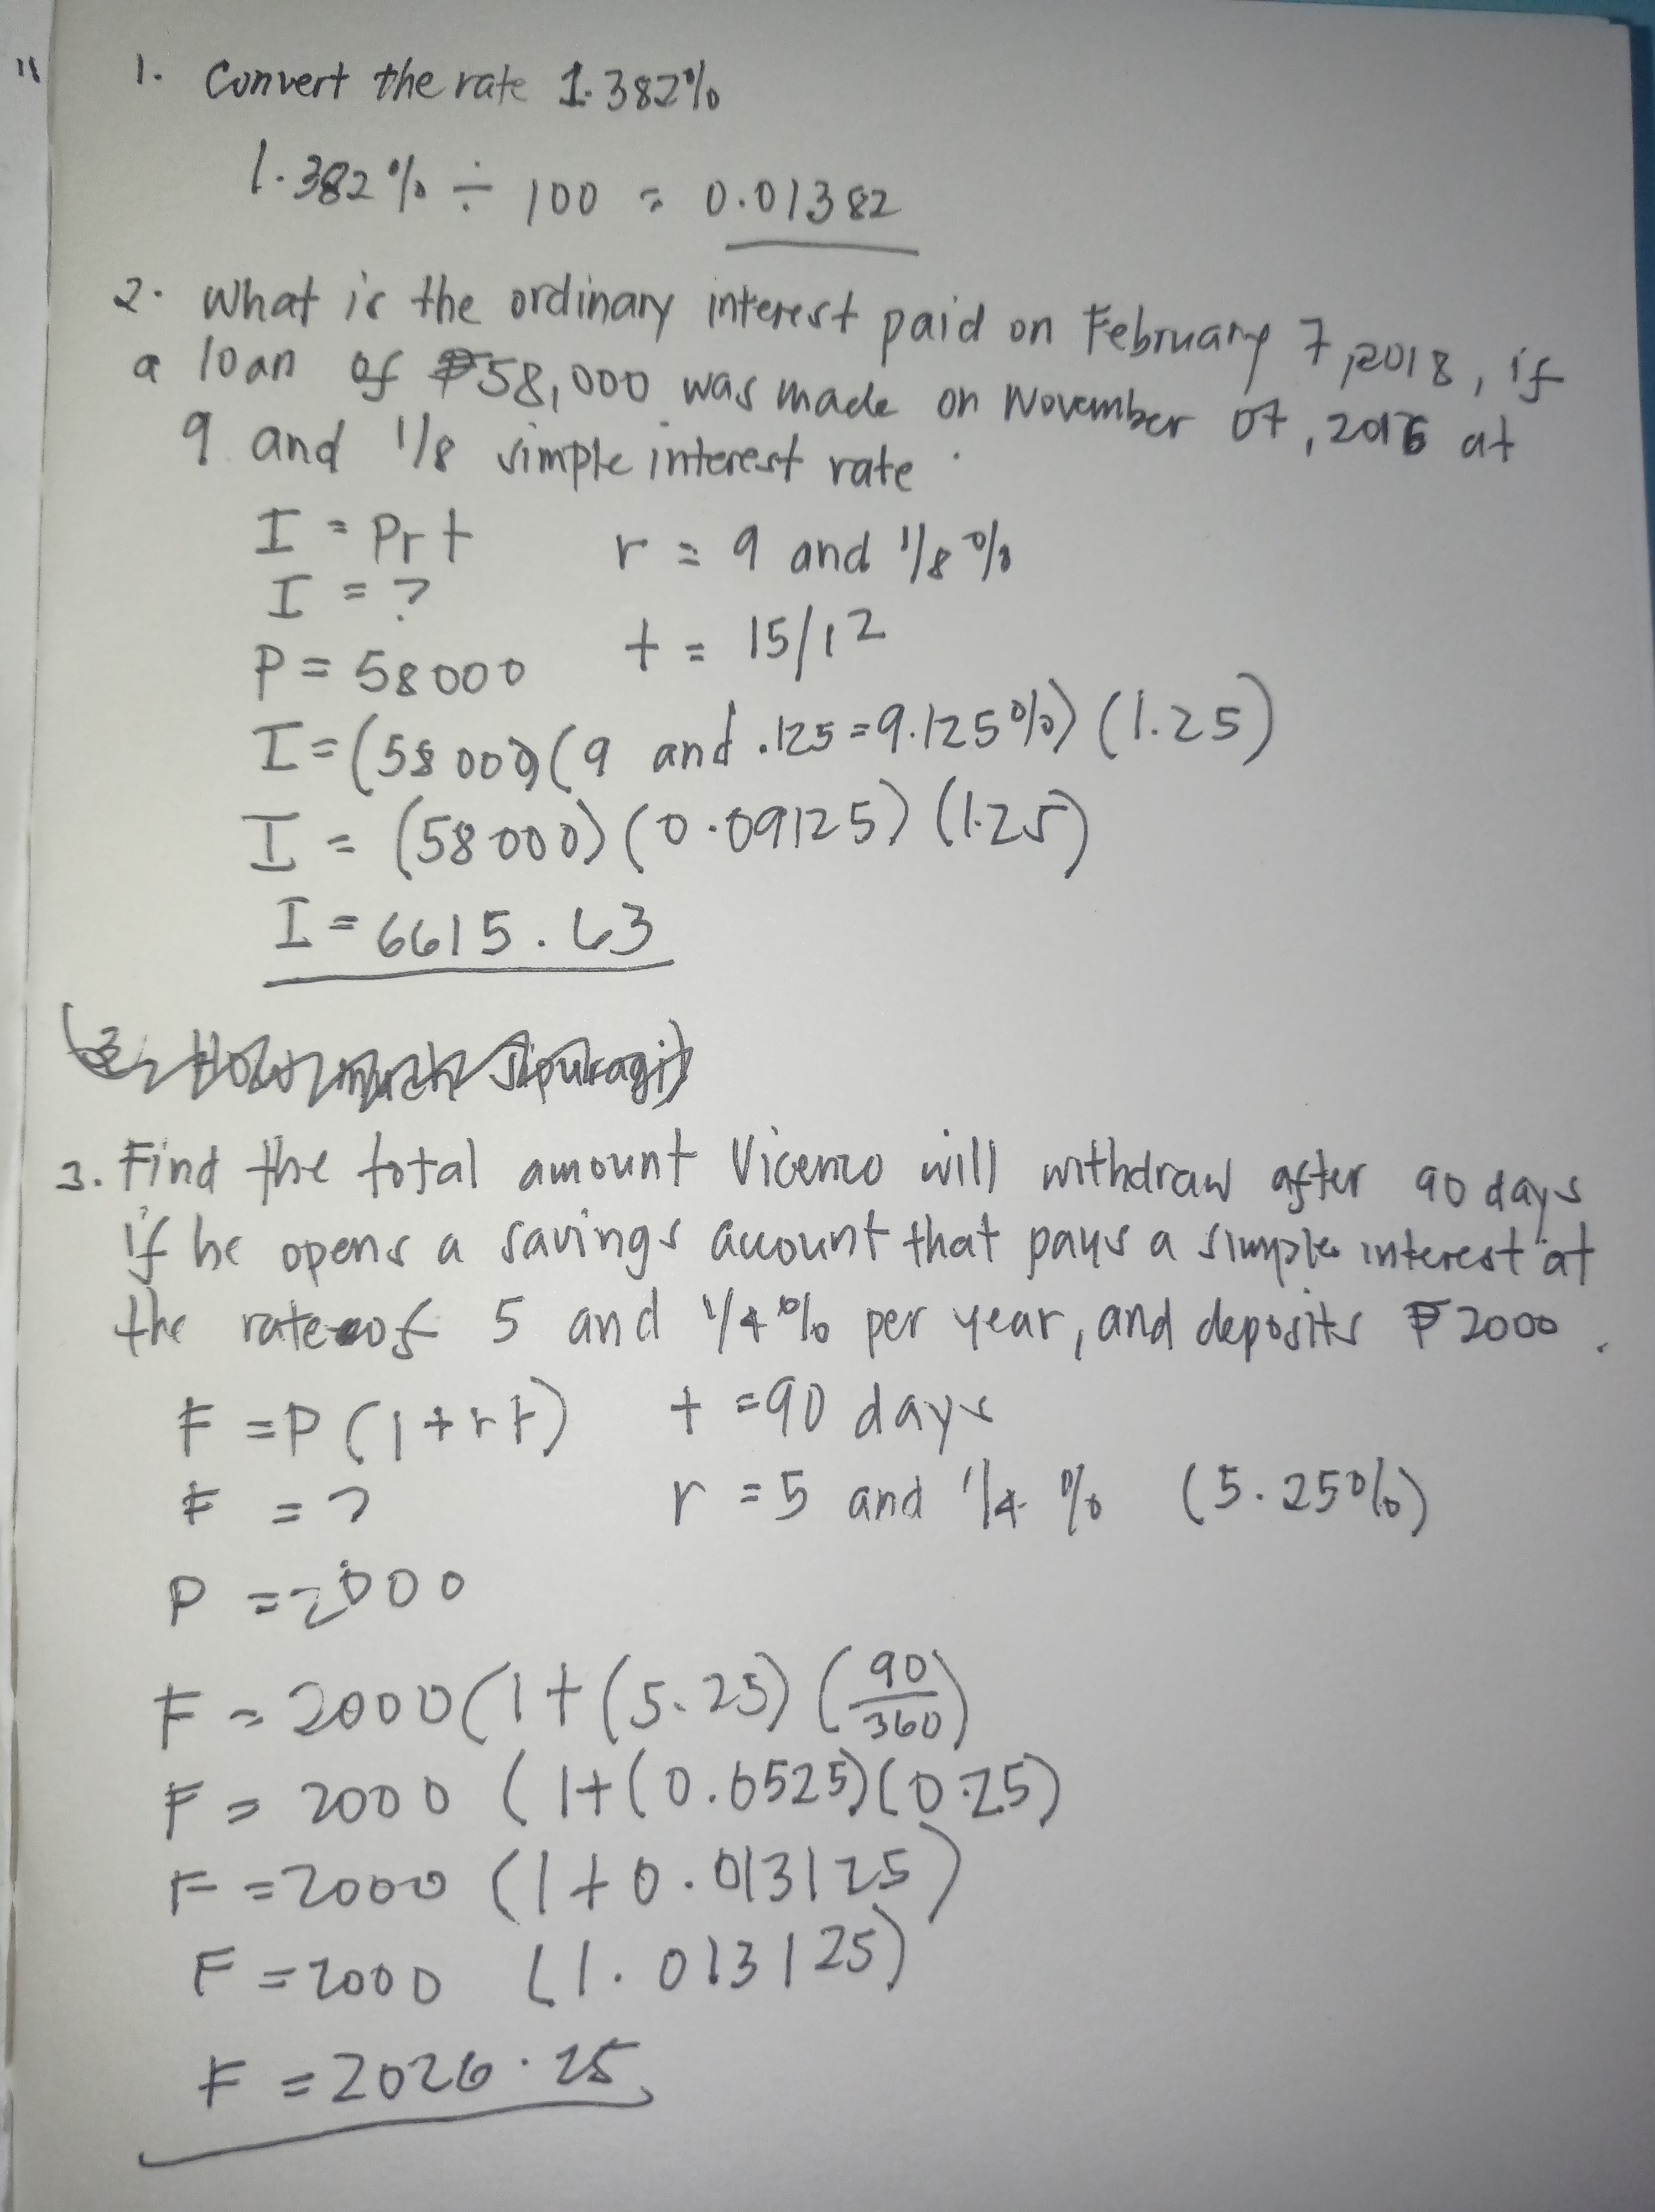 1. Convert the rate 1.382%
1.382% ÷ 100 = 0.01382
2. What is the ordinary interest paid on February 7, 2018, if
a loan of ₱58,000 was made on November 07, 2016 at
9 and 1/8 simple interest rate.
I = Prt r = 9 and 1/8 %
I = ?
P = 58000 t = 15/12
I = (58000)(9 and .125 = 9.125%) (1.25)
I = (58000) (0.09125) (1.25)
I = 6615.63
3. Find the total amount Vicenzo will withdraw after 90 days
if he opens a savings account that pays a simple interest at
the rate of 5 and 1/4 % per year, and deposits ₱2000.
F = P (1 + rt) t = 90 days
F = ? r = 5 and 1/4 % (5.25%)
P = 2000
F = 2000 (1 + (5.25) (90/360)
F = 2000 (1+(0.0525)(0.25)
F = 2000 (1 + 0.013125)
F = 2000 (1.013125)
F = 2026.25